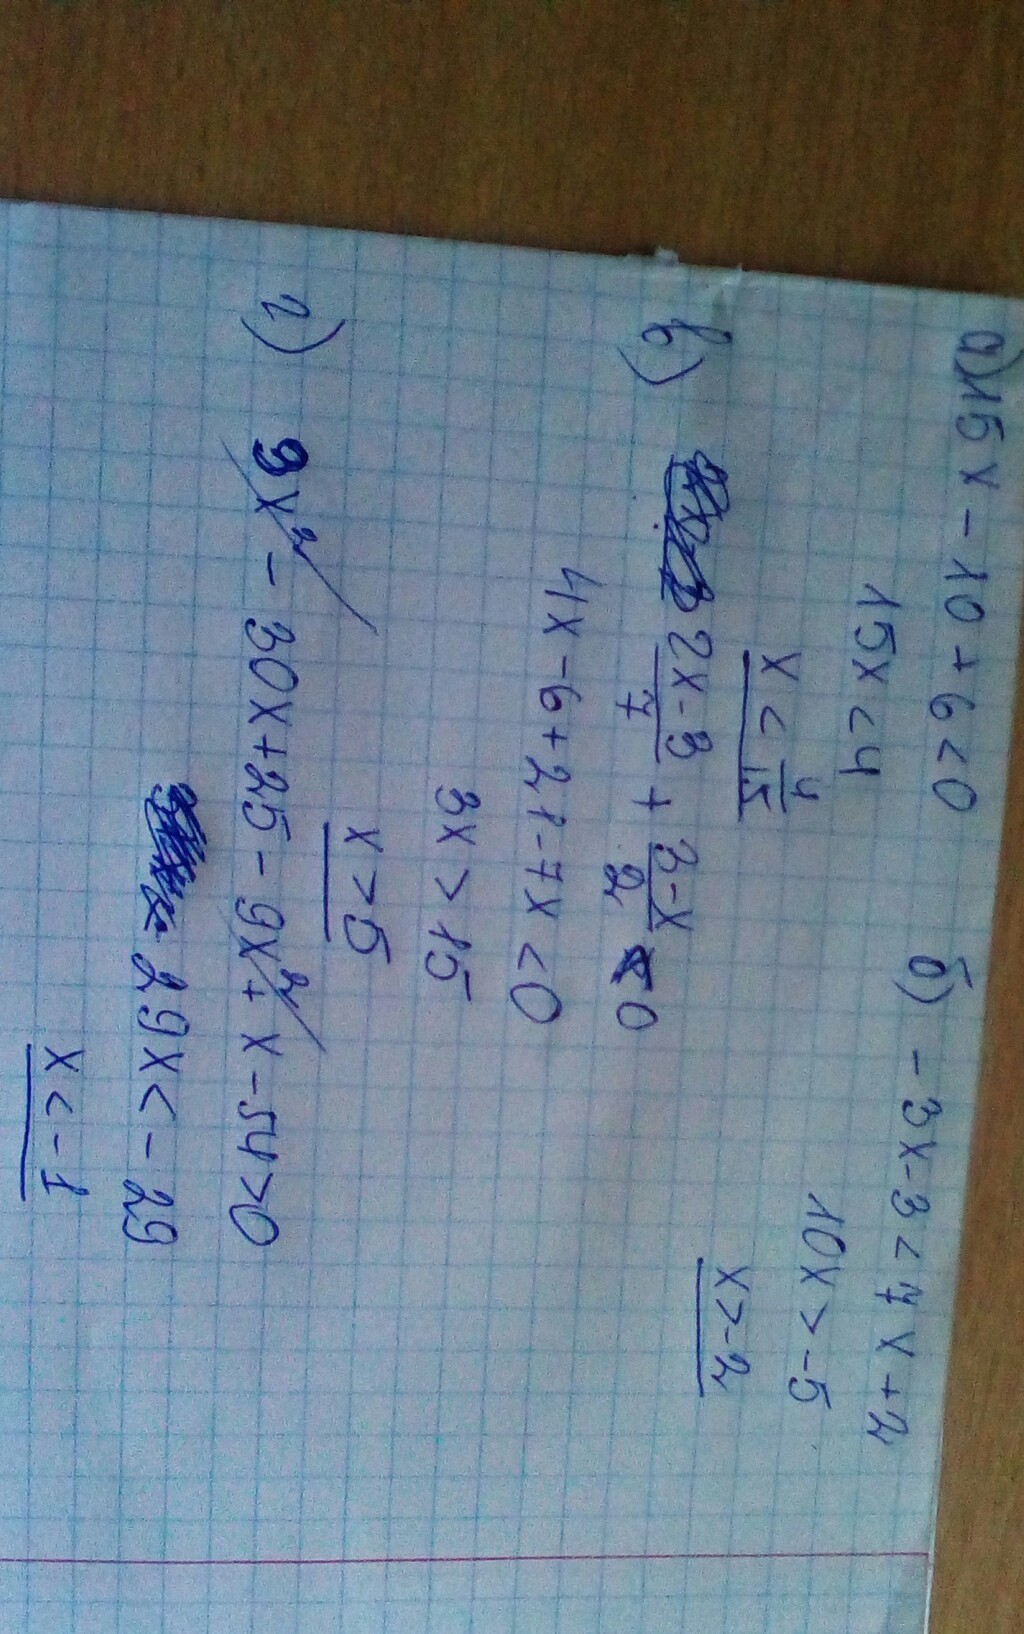 а) 15x - 10 + 6 < 0
15x < 4
x < 4/15
б) - 3x - 3 < 7x + 2
10x > -5
x > -2
в) 2x - 3/7 + 3 - x/2 < 0
4x - 6 + 21 - 7x < 0
3x > 15
x > 5
г) 9x² - 30x + 25 - 9x² + x - 54 > 0
29x < - 29
x < - 1